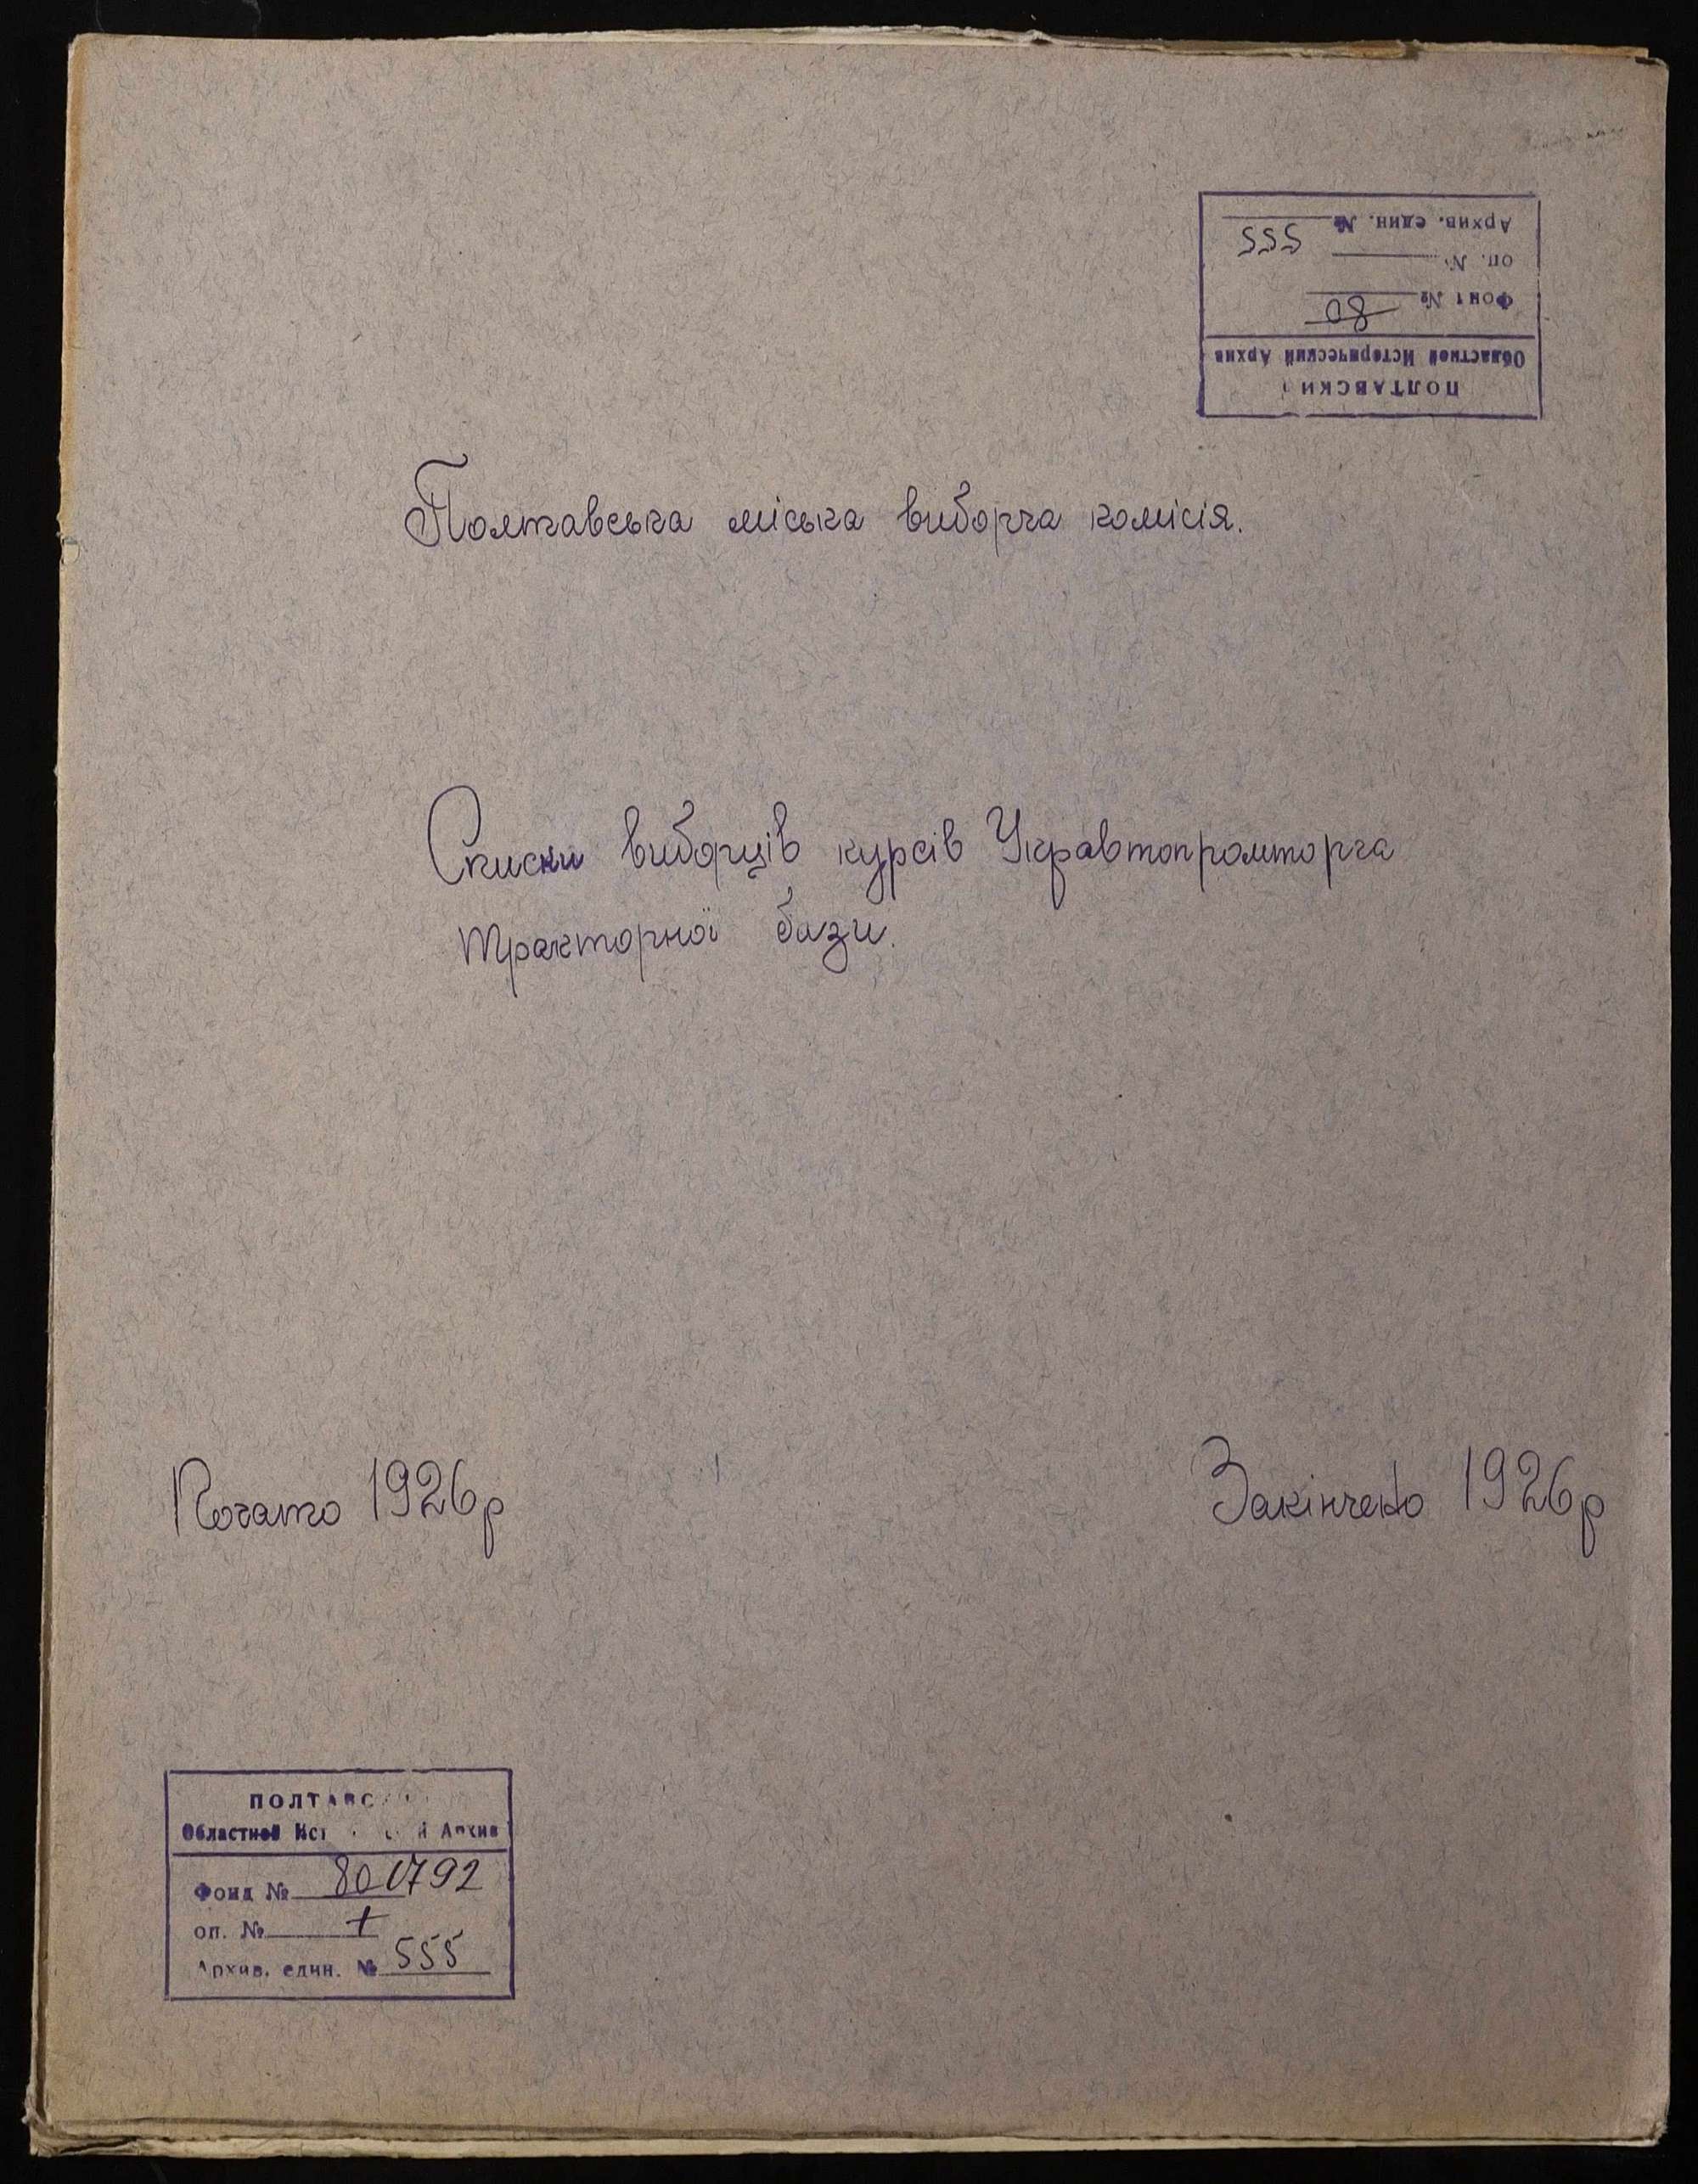 ПОЛТАВСКИ
Областной Исторический Архив
Фонд № 80
оп. №
Архив. един. № 555
Полтавська міська виборча комісія.
Списки виборців курсів Укравтопромторга
тракторної бази.
Почато 1926р
Закінчено 1926р
ПОЛТАВС
Областной Ист й Архив
Фонд № 80 1792
оп. № 1
Архив. един. № 555